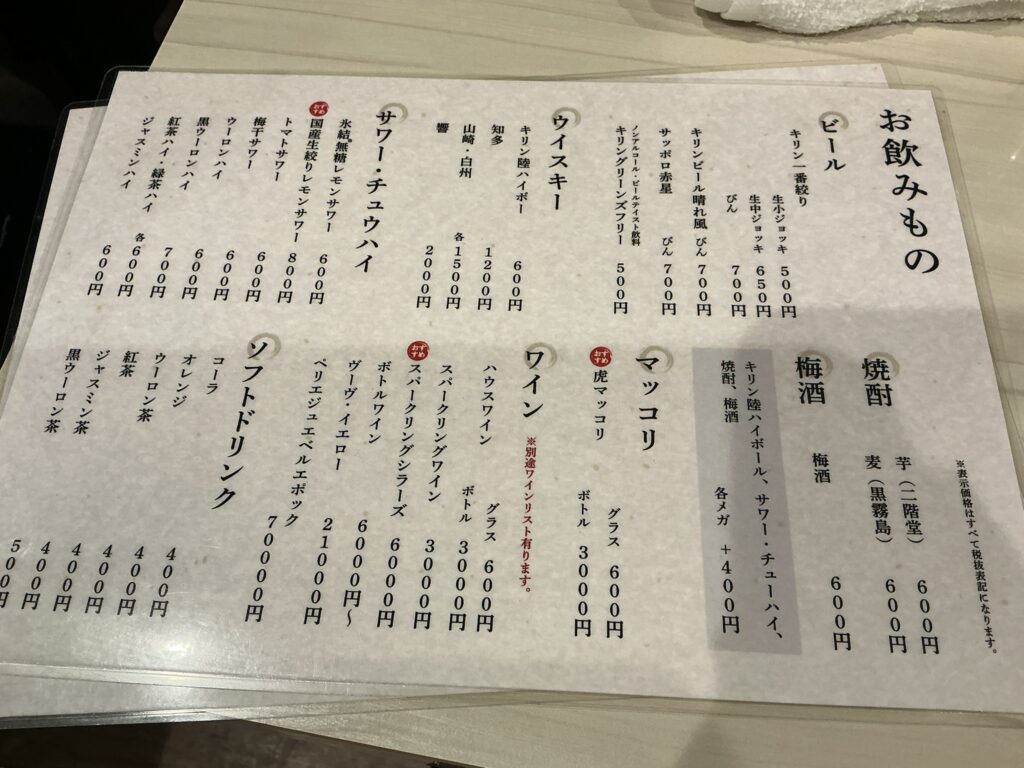 お飲みもの
※表示価格はすべて税抜表記になります。
ビール
キリン一番絞り
生小ジョッキ 500円
生中ジョッキ 650円
びん 700円
キリンビール晴れ風 びん 700円
サッポロ赤星 びん 700円
ノンアルコール・ビールテイスト飲料
キリングリーンズフリー 500円
ウイスキー
キリン陸ハイボー 600円
知多 1200円
山崎・白州 各1500円
響 2000円
サワー・チュウハイ
氷結®無糖レモンサワー 600円
おすすめ 国産生絞りレモンサワー 800円
トマトサワー 600円
梅干サワー 600円
ウーロンハイ 600円
黒ウーロンハイ 700円
紅茶ハイ・緑茶ハイ 各600円
ジャスミンハイ 600円
焼酎
芋(二階堂) 600円
麦(黒霧島) 600円
梅酒
梅酒 600円
キリン陸ハイボール、サワー・チューハイ、
焼酎、梅酒 各メガ +400円
マッコリ
おすすめ 虎マッコリ グラス 600円
ボトル 3000円
ワイン ※別途ワインリスト有ります。
ハウスワイン グラス 600円
ボトル 3000円
スパークリングワイン 3000円
おすすめ スパークリングシラーズ 6000円
ボトルワイン 6000円〜
ヴーヴ・イエロー 21000円
ペリエジュエベルエポック 70000円
ソフトドリンク
コーラ 400円
オレンジ 400円
ウーロン茶 400円
紅茶 400円
ジャスミン茶 400円
黒ウーロン茶 500円